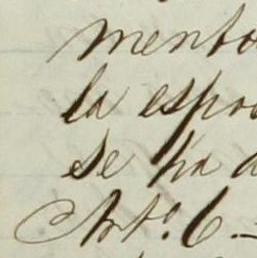 mento
la espo
se ha d
Art.º 6_